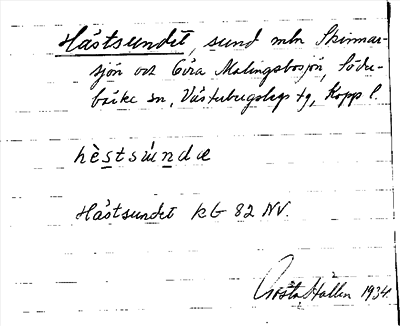 Hästsundet, sund mln Skinnar-
sjön och Góra Malingsbosjön, Söder-
bärke sn, Västerbergslags tg, Kopp l.
hèstsúndæ
Hästsundet kG 82 NV.
Gösta Hallen 1934.